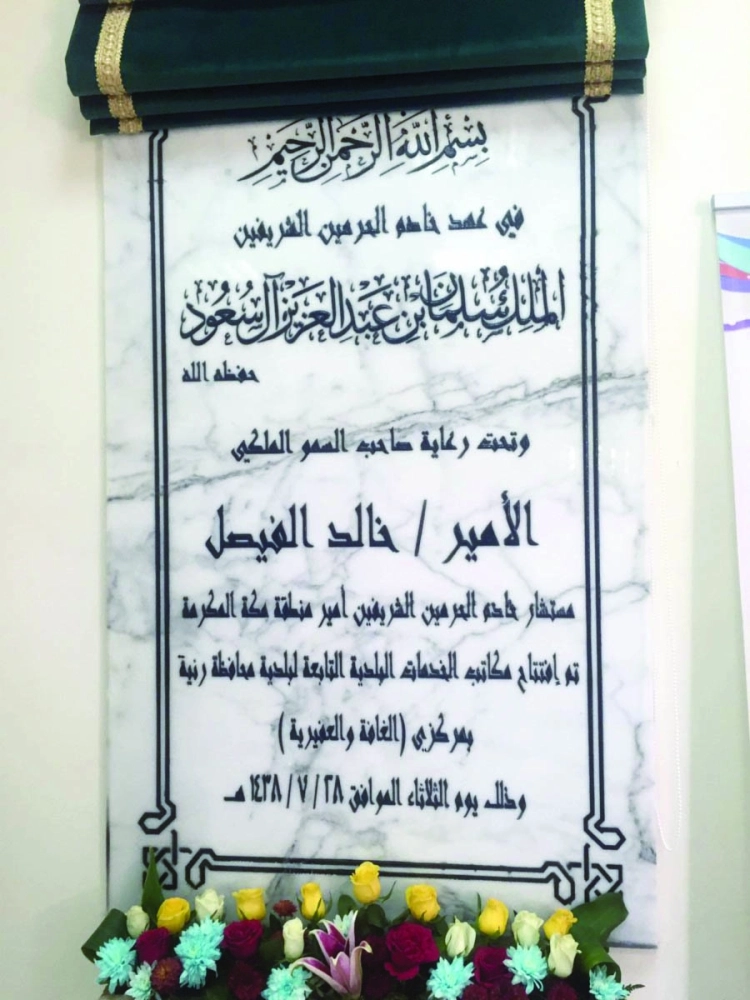 بسم الله الرحمن الرحيم
في عهد خادم الحرمين الشريفين
الملك سلمان بن عبد العزيز آل سعود
حفظه الله
وتحت رعاية صاحب السمو الملكي
الأمير / خالد الفيصل
مستشار خادم الحرمين الشريفين أمير منطقة مكة المكرمة
تم إفتتاح مكاتب الخدمات البلدية التابعة لبلدية محافظة رنية
بمركزي (الغافة والعفيرية)
وذلك يوم الثلاثاء الموافق ٢٨ / ٧ / ١٤٣٨ هـ